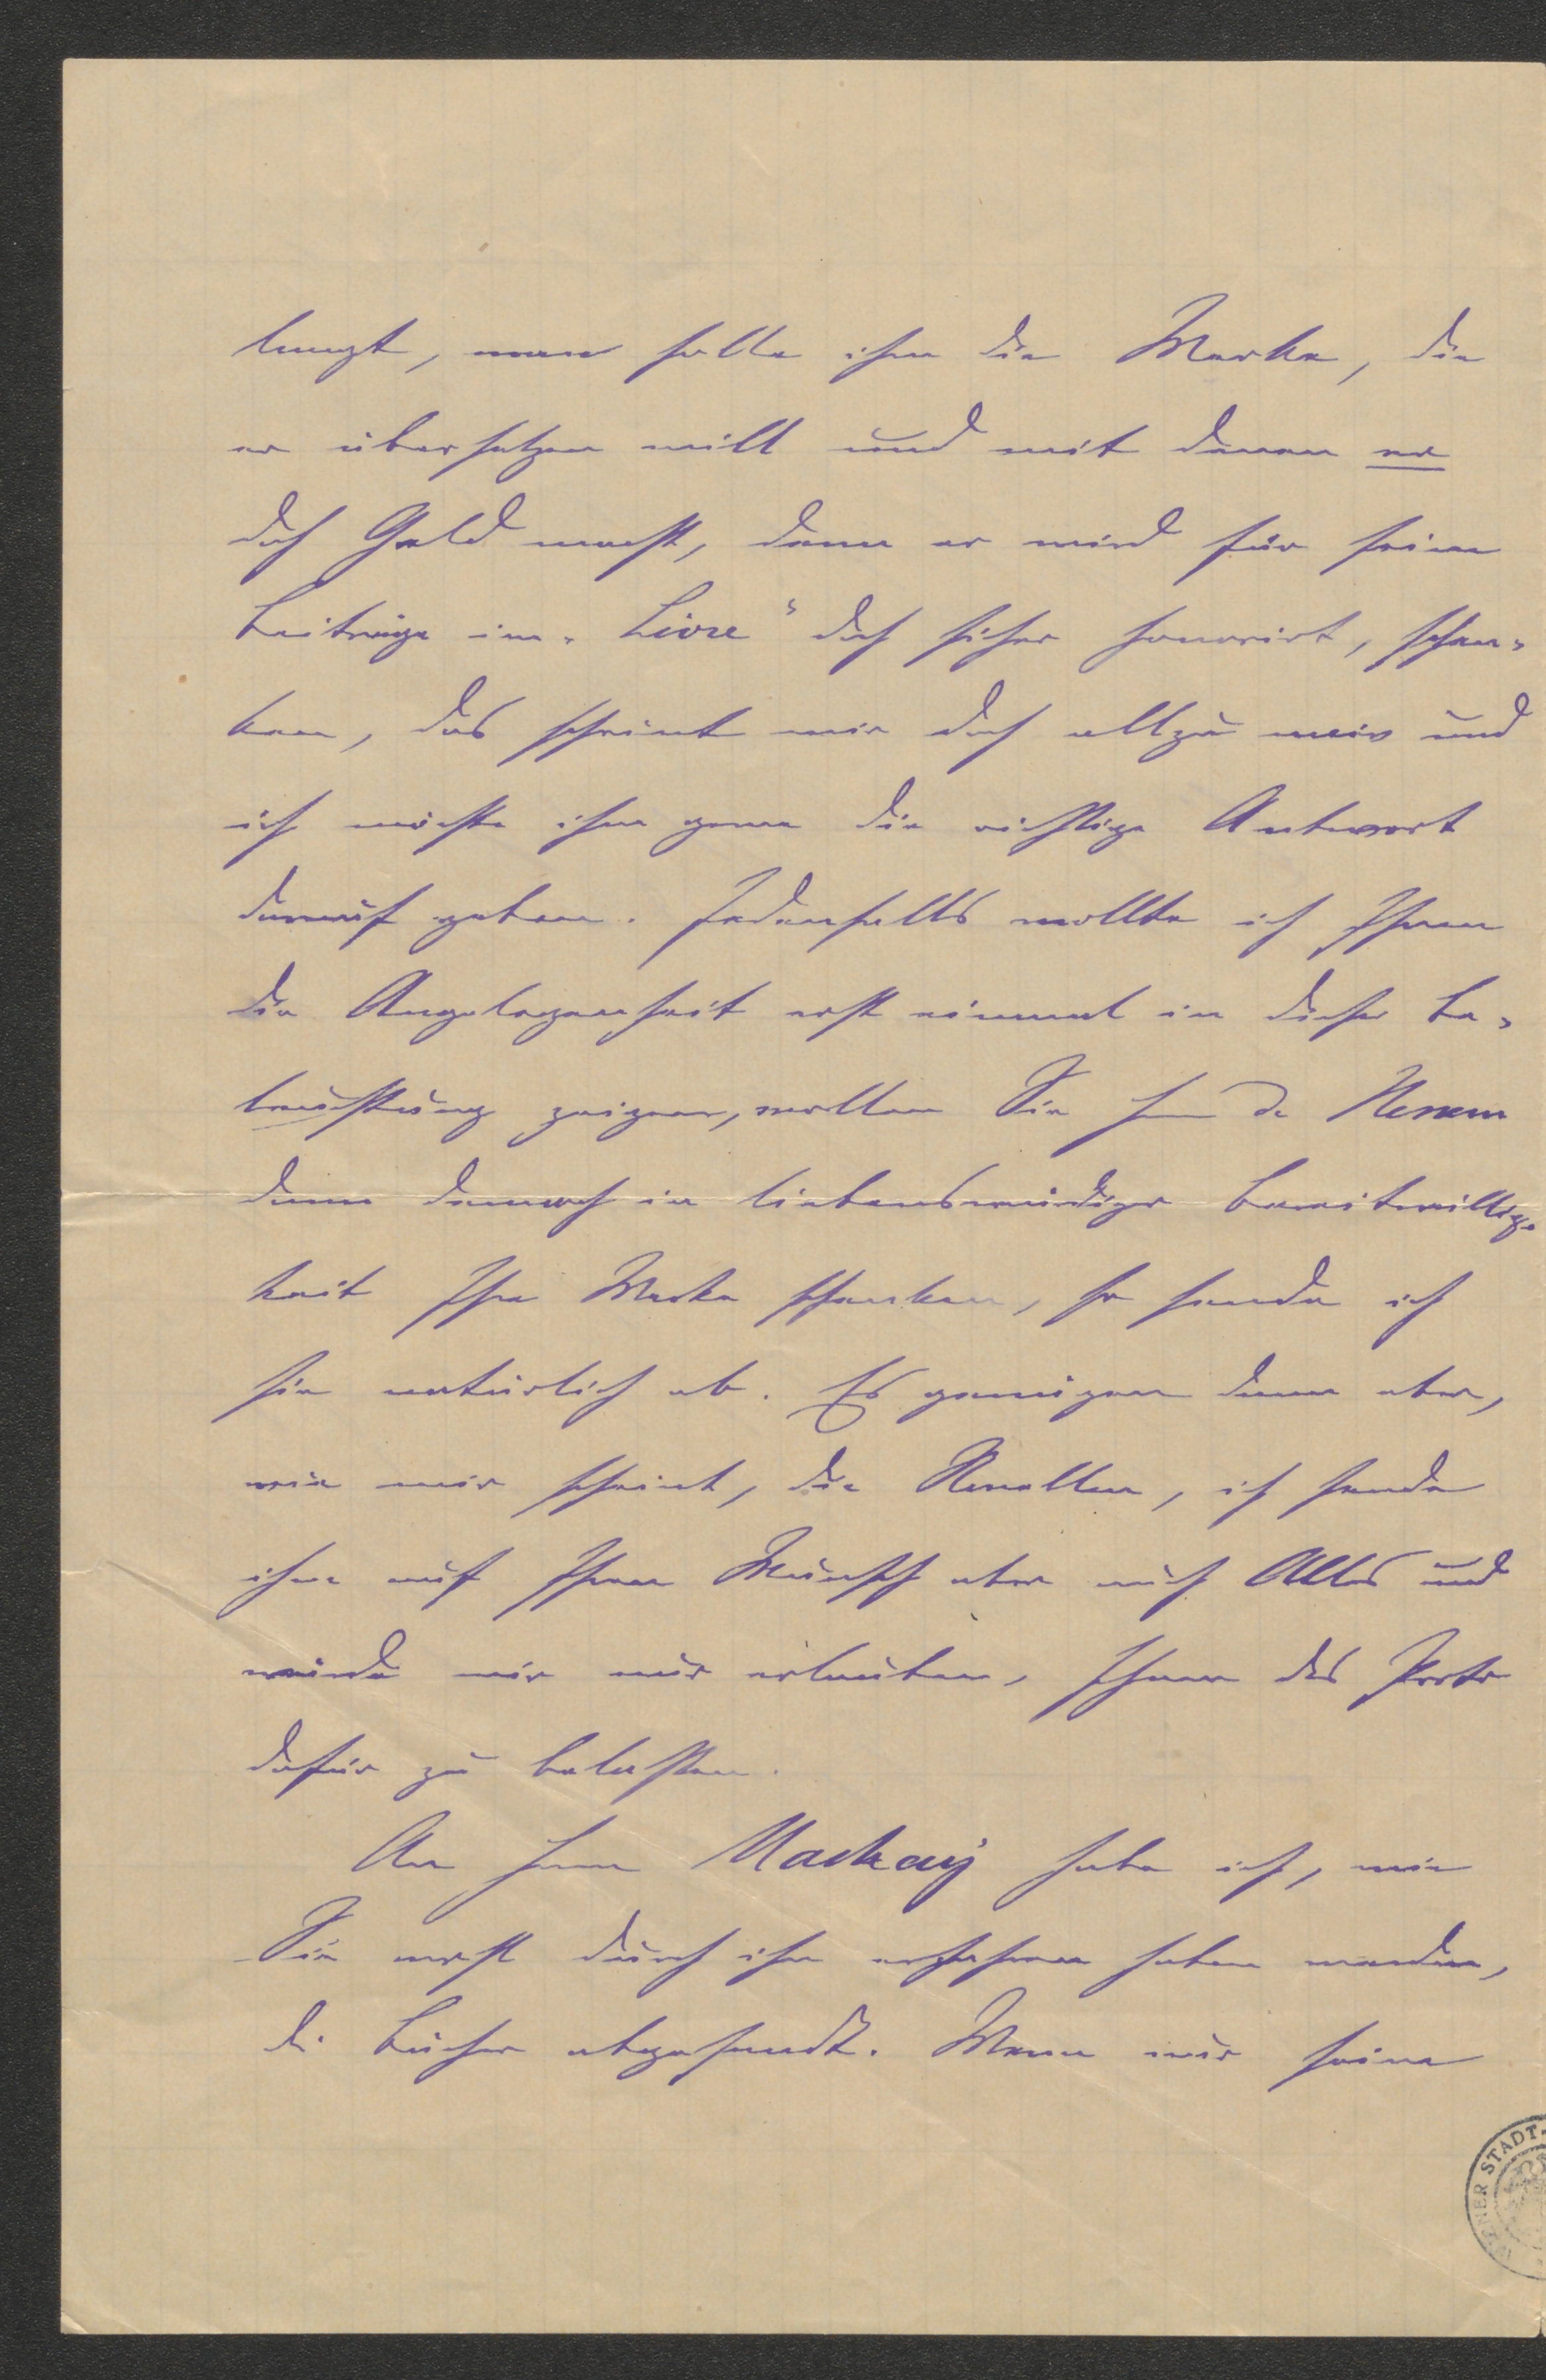 langt, man solle ihm die Werke, die
er übersetzen will und mit denen er
doch Geld macht, denn er wird für seine
Beiträge im „Livre“ doch sicher honorirt, schen-
ken, das scheint mir doch allzu naiv und
ich möchte ihm gerne die richtige Antwort
darauf geben. Jedenfalls wollte ich Ihnen
die Angelegenheit erst einmal in dieser Be-
leuchtung zeigen, wollen Sie H de Nerau
dann dennoch in liebenswürdiger Bereitwillig-
keit Ihre Werke schenken, so sende ich
sie natürlich ab. Es genügen dann aber,
wie mir scheint, die Novellen, ich sende
ihm auf Ihren Wunsch aber auch Alles und
würde mir nur erlauben, Ihnen das Porto
dafür zu belasten.
An Herrn Mackay habe ich, wie
Sie wohl durch ihn erfahren haben werden,
die Bücher abgesandt. Wenn wir seine
WIENER STADT-